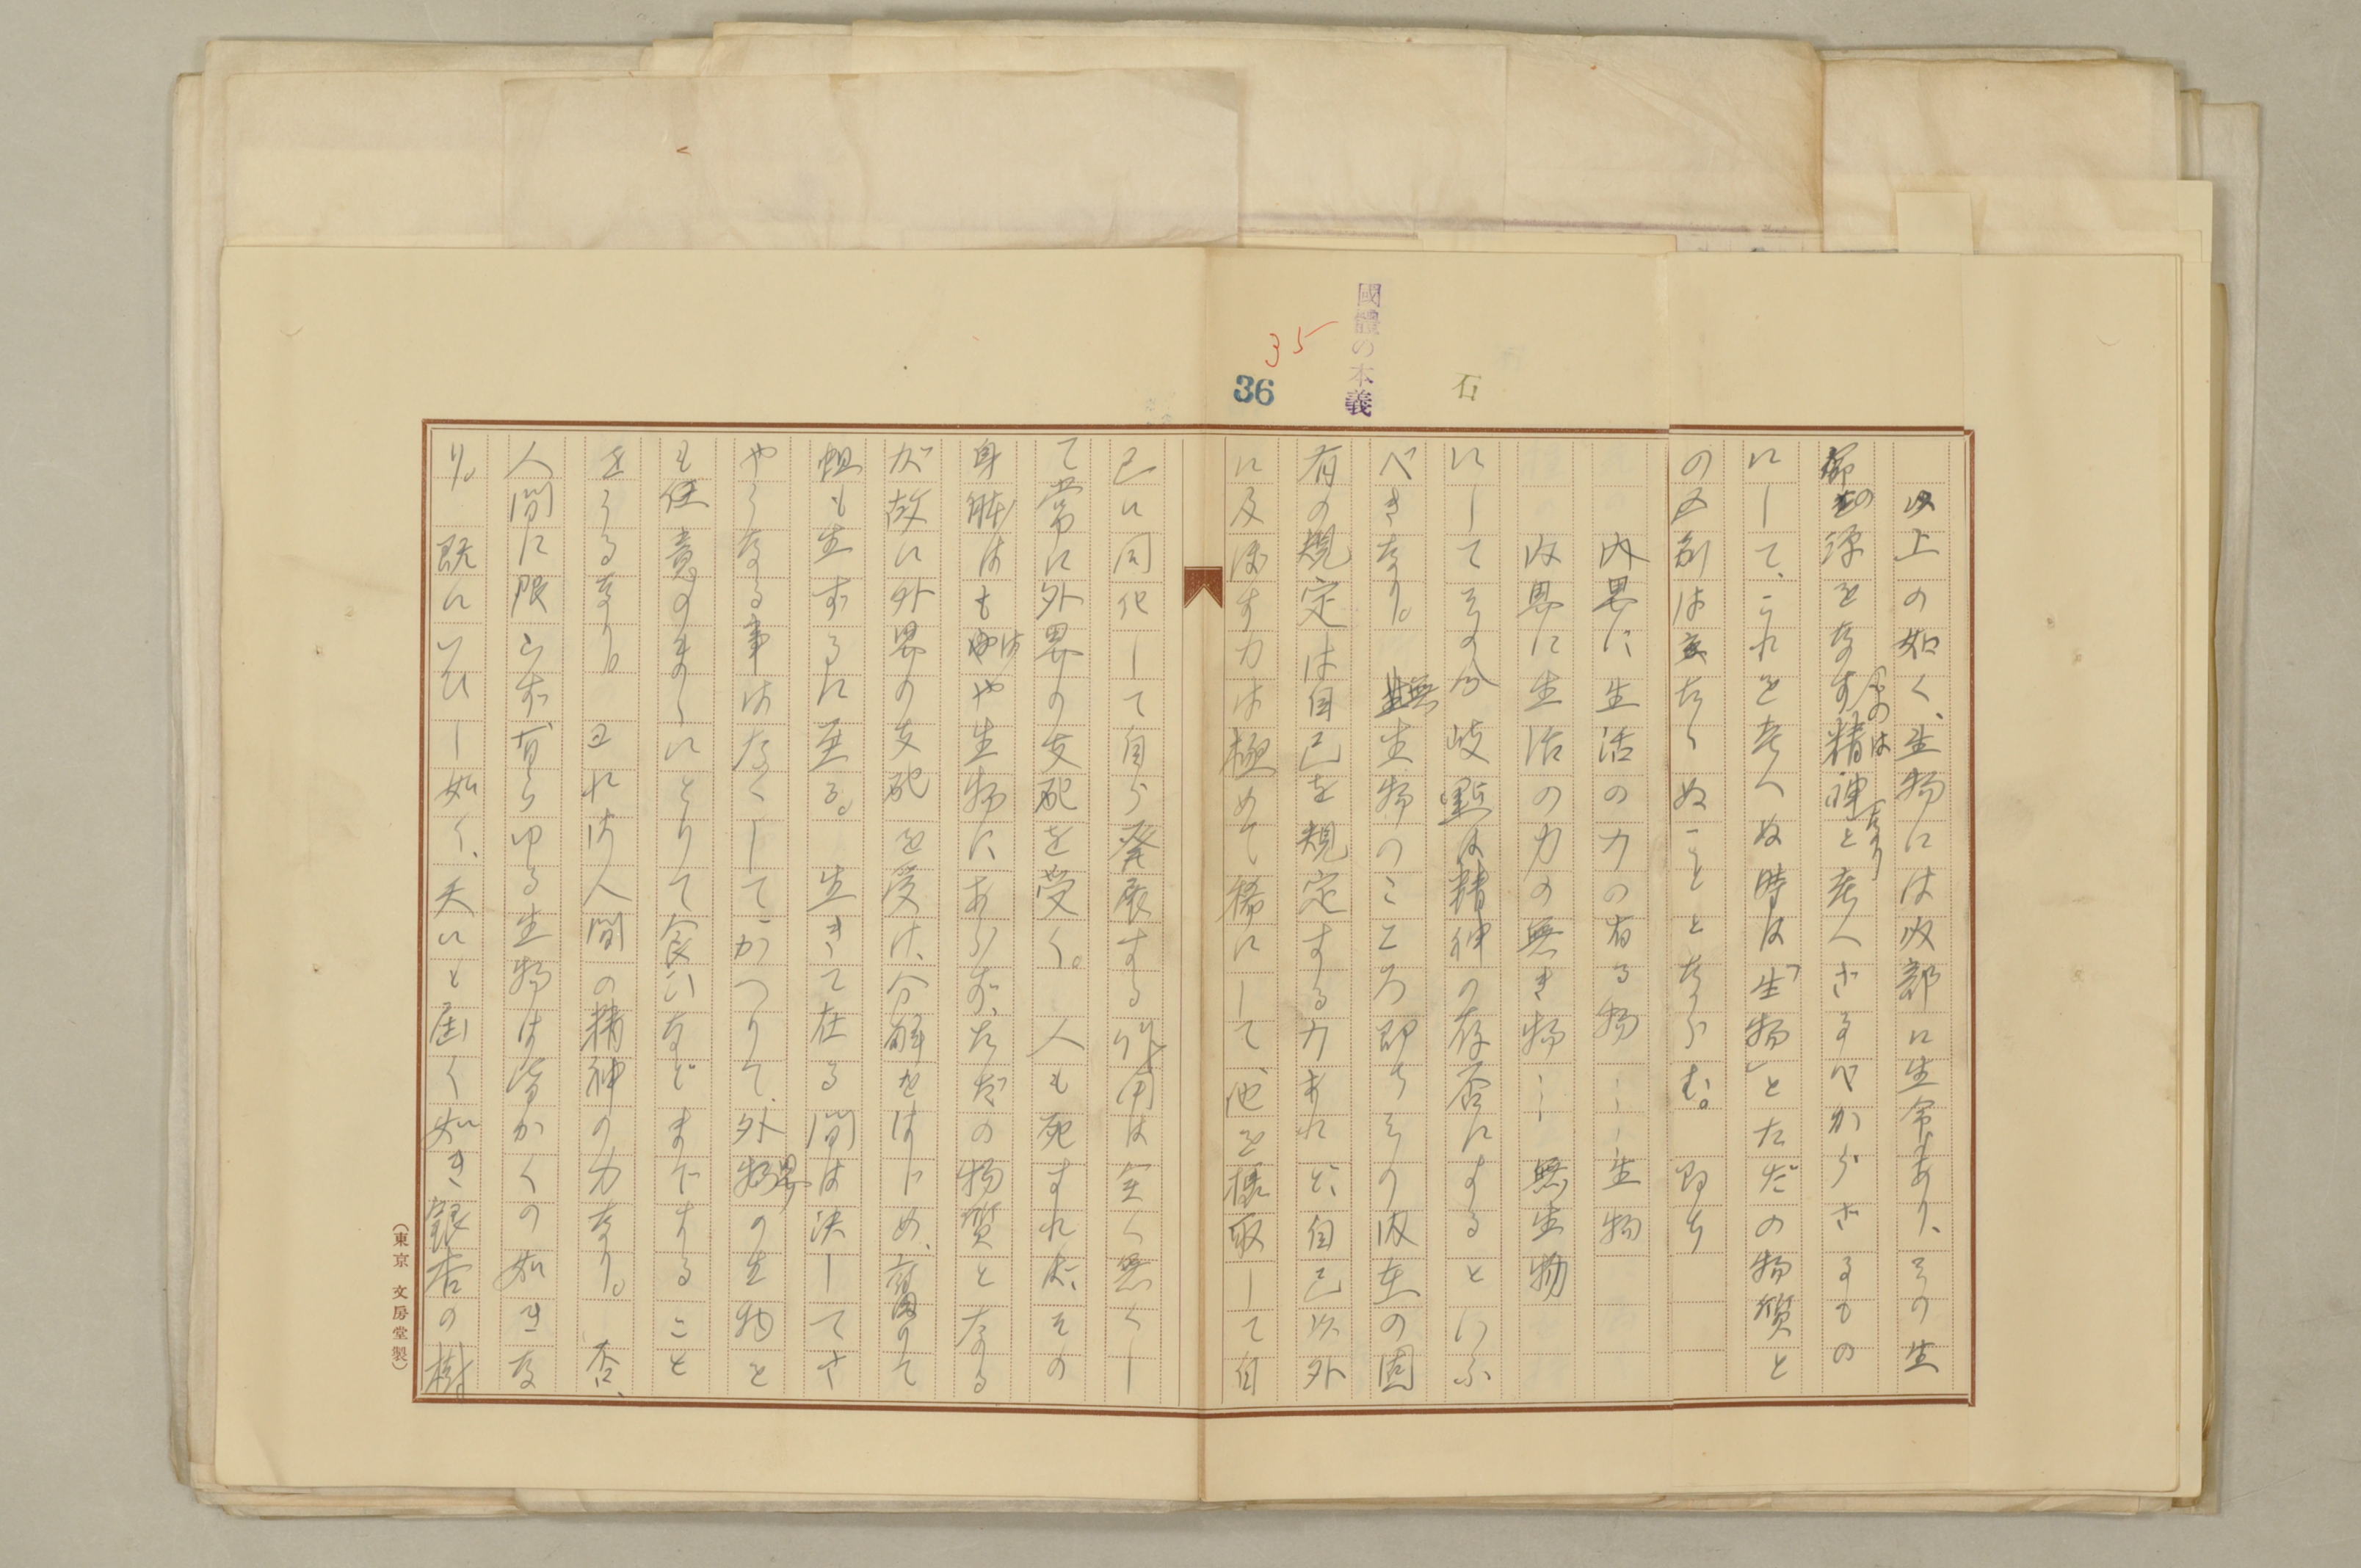 國體の本義
石
35
36
以上の如く、生物には内部に生命あり、その生
命の源をなすものは精神なりと考へざるべからざるもの
にして、これを考へぬ時は「生物」とただの物質と
の区別は立たぬことゝならむ。即ち
内界に生活の力の有る物……生物
内界に生活の力の無き物……無生物
にしてその分岐點は精神の存否にするといふ
べきなり。無生物のところ即ちその内在の固
有の規定は自己を規定する力あれど、自己以外
に及ぼす力は極めて稀にして、他を攝取して自
己に同化して自ら発展する作用は全く無くし
て常に外界の支配を受く。人も死すれば、その
身体はもはや生物にあらず、ただの物質となる
が故に外界の支配を受け、分解をはじめ、腐りて
蛆も生ずるに至る。生きて在る間は決してさ
やうなる事はなくして、かつりて、外界の生物を
も任意のまゝにとりて食ひなどまですること
をうるなり。これは人間の精神の力なり。否、
人間に限らず、有らゆる生物は皆かくの如きな
り。既にいひし如く、天にも届く如き銀杏の樹
（東京 文房堂製）